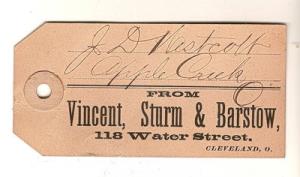 J. D. Westcott
Apple Creek
O.
FROM
Vincent, Sturm & Barstow,
118 Water Street.
CLEVELAND, O.